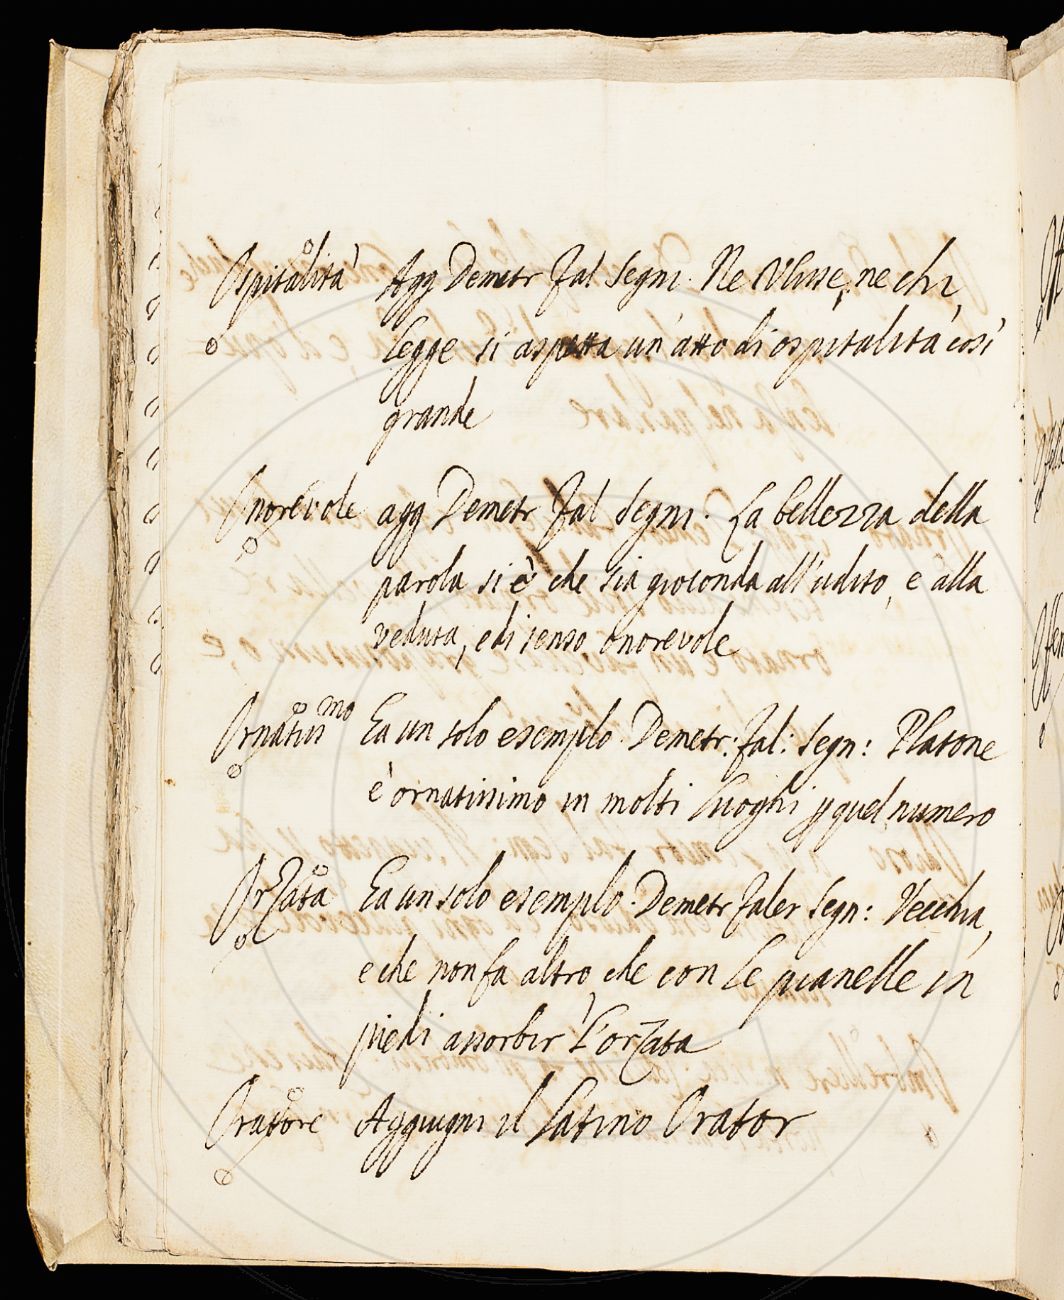 Ospitalità Agg Demetr Fal Segni. Ne Ulisse, ne chi
legge si aspetta un atto di ospitalità così
grande
Onorevole agg Demetr Fal Segni. La bellezza della
parola si è che sia gioconda all'udito, e alla
veduta, e di senso onorevole
Ornatissmo Ha un solo esempio. Demetr: Fal: Segn: Platone
è ornatissimo in molti luoghi quel numero
Orzata Ha un solo esempio. Demetr Faler Segn: Vecchia,
e che non fa altro, che con le pianelle in
piedi assorbir l'orzata
Oratore Aggiugni il latino Orator